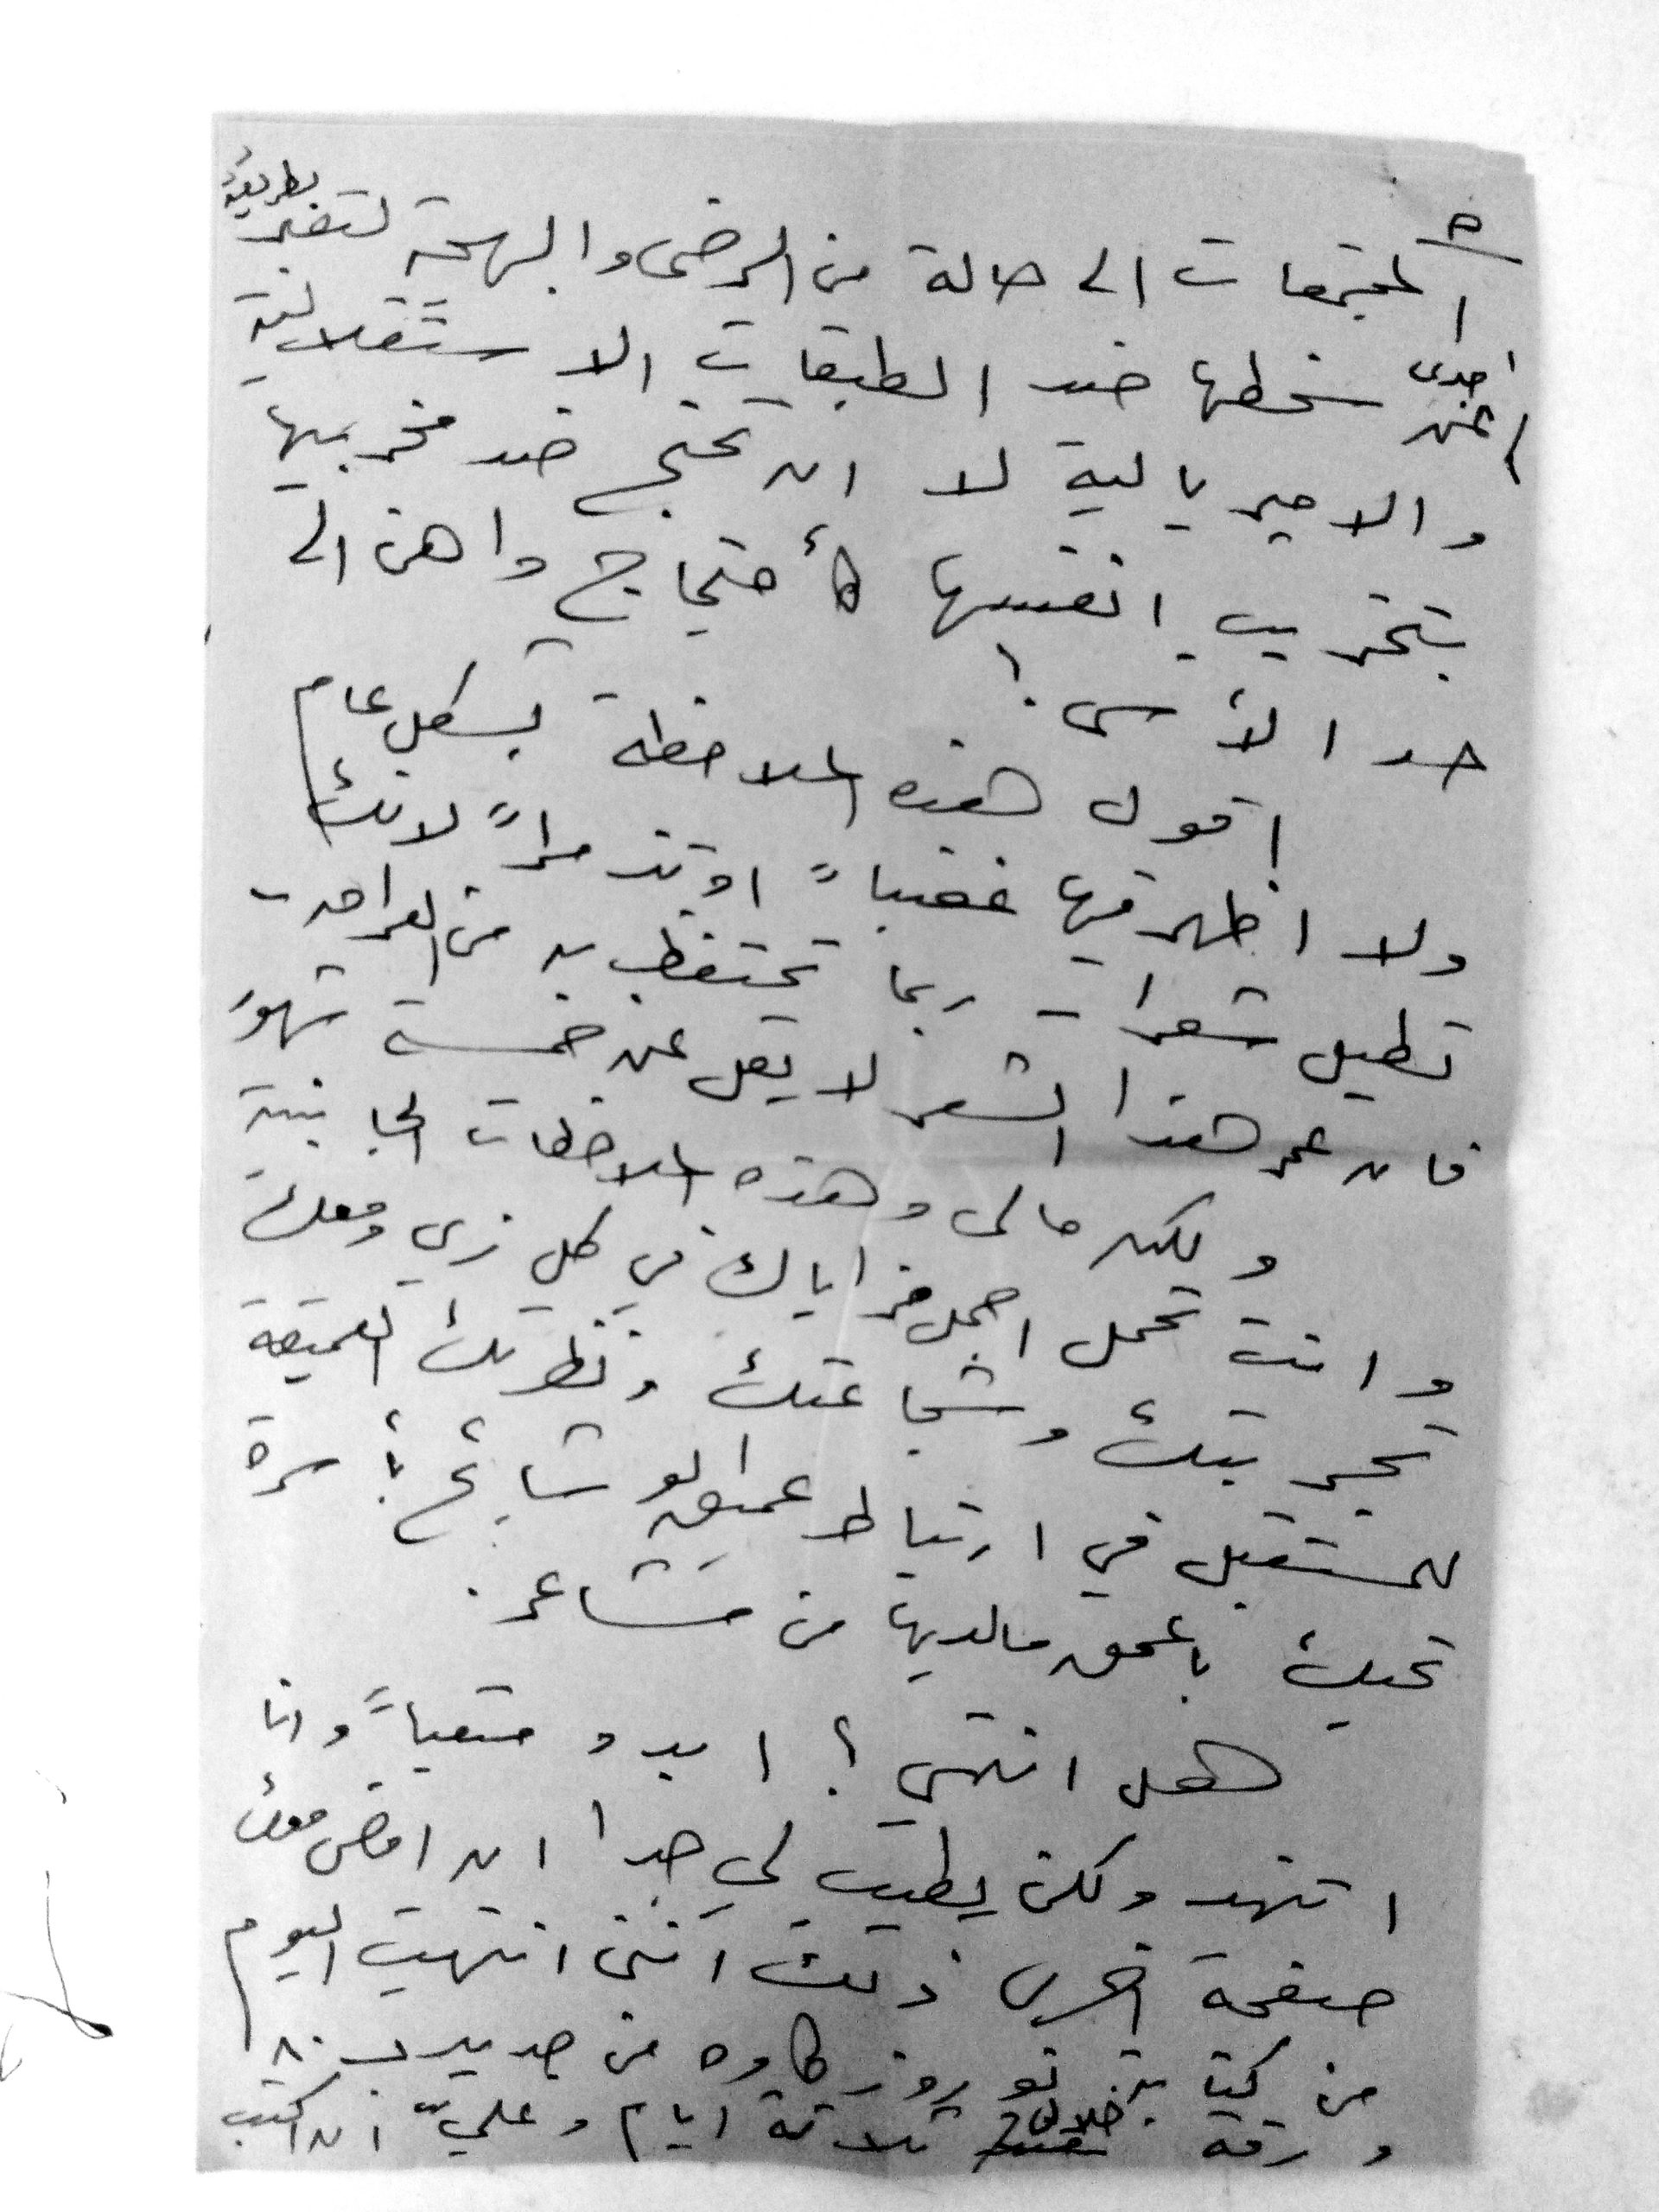 ٥
المجتمعات الى حالة من الرضى والبهجة لتفجر بطريقة
احدى
اخرى سخطها ضد الطبقات الاستغلالية
والامبريالية لا ان تحتج ضد مخربيها
بتخريب انفسها كأحتجاج واهن الى
حد الأسى.
اقول هذه الملاحظة بشكل عام
ولا اظهر فيها غضباً او تذمراً لانك
تطيل شعرات ربما تحتفظ به من العراق
فان عمر هذا الشعر لا يقل عن خمسة شهور
ولكن مالي وهذه الملاحظات الجانبية
وانت تحمل اجمل مزاياك في كل زي ومعك
تجربتك وشجاعتك ونظرتك العميقة
للمستقبل في ارتباط عميق الوشائج بأسرة
تحبك بأعمق مالديها من مشاعر.
هل انتهي؟ ابدو متعباً وانا
اتنهد ولكن يطيب لي جدا ان امضي معك
صفحة اخرى ذلك انني انتهيت اليوم
من كتابة نوروز كاوه من جديد ب ٨٠
ورقة خلال ثلاثة ايام وعليّ ان اكتب